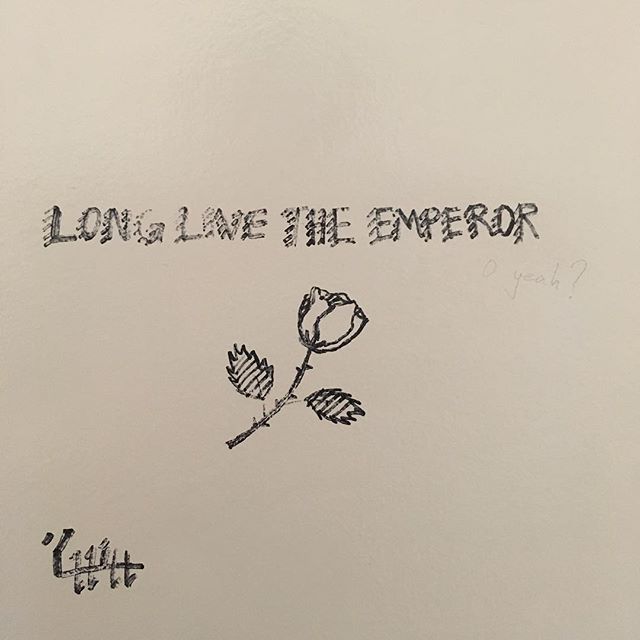 LONG LIVE THE EMPEROR
O yeah?